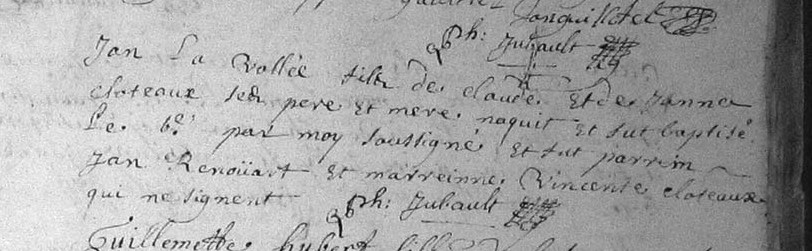 Ph: Jubault
Jan La Vallée filz de claude et de Janne
cloteaux ses pere et mere naquit et fut baptisé
le 6e par moy soussigné et fut parrin
Jan Renoüart et marreinne Vincente cloteaux
qui ne signent Ph: Jubault
Guillemette hubert fille